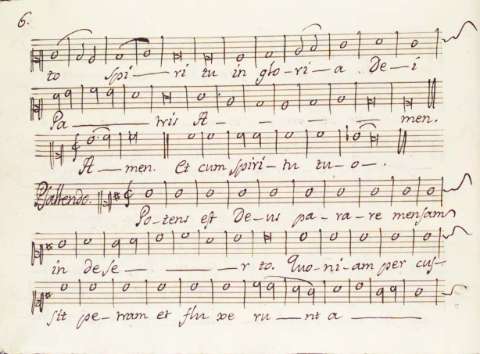 6.
to spi — ri tu in glo-ri-a. De-i
Pa — tris A — — — — men.
A — men. Et cum spiri-tu tu-o-.
Psallendo.
Po-tens est De-us pa-ra-re mensam
in dese — — — r to. Quo-ni-am per cus-
sit pe-tram et flu xe ru — nt a —